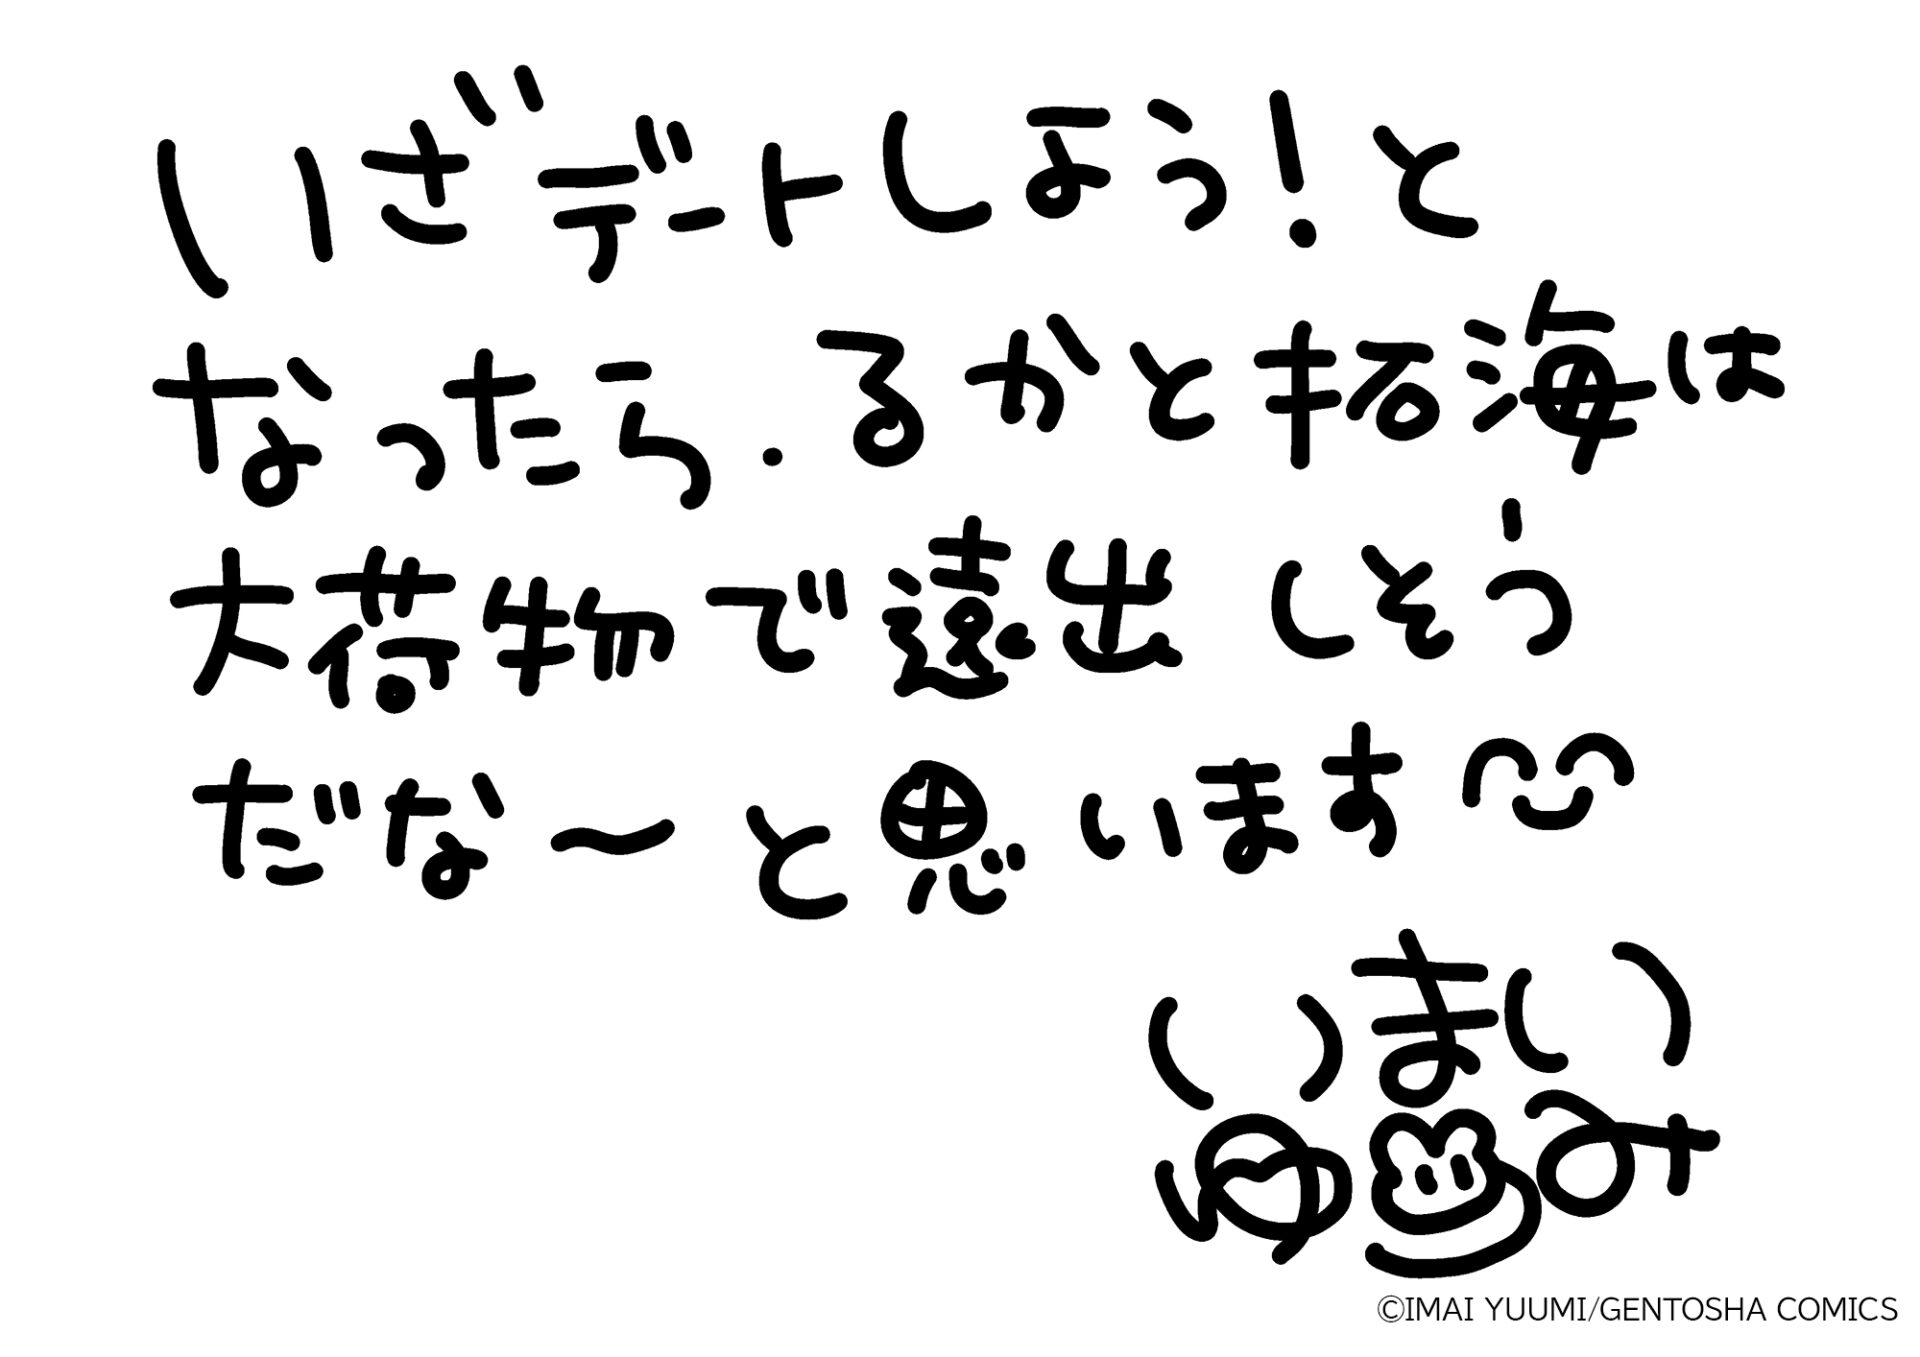 いざデートしよう!と
なったら.るかと拓海は
大荷物で遠出しそう
だな〜と思います
いまい
ゆうみ
©IMAI YUUMI/GENTOSHA COMICS